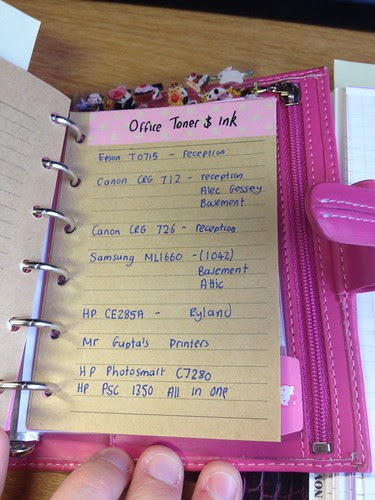 Office Toner $ Ink
Epson T0715 - reception
Canon CRG 712 - reception
Alec Gessey
Basement
Canon CRG 726 - reception
Samsung ML1660 - (1042)
Basement
Attic
HP CE285A - Ryland
Mr Gupta's Printers
HP Photosmart C7280
HP PSC 1350 All in one